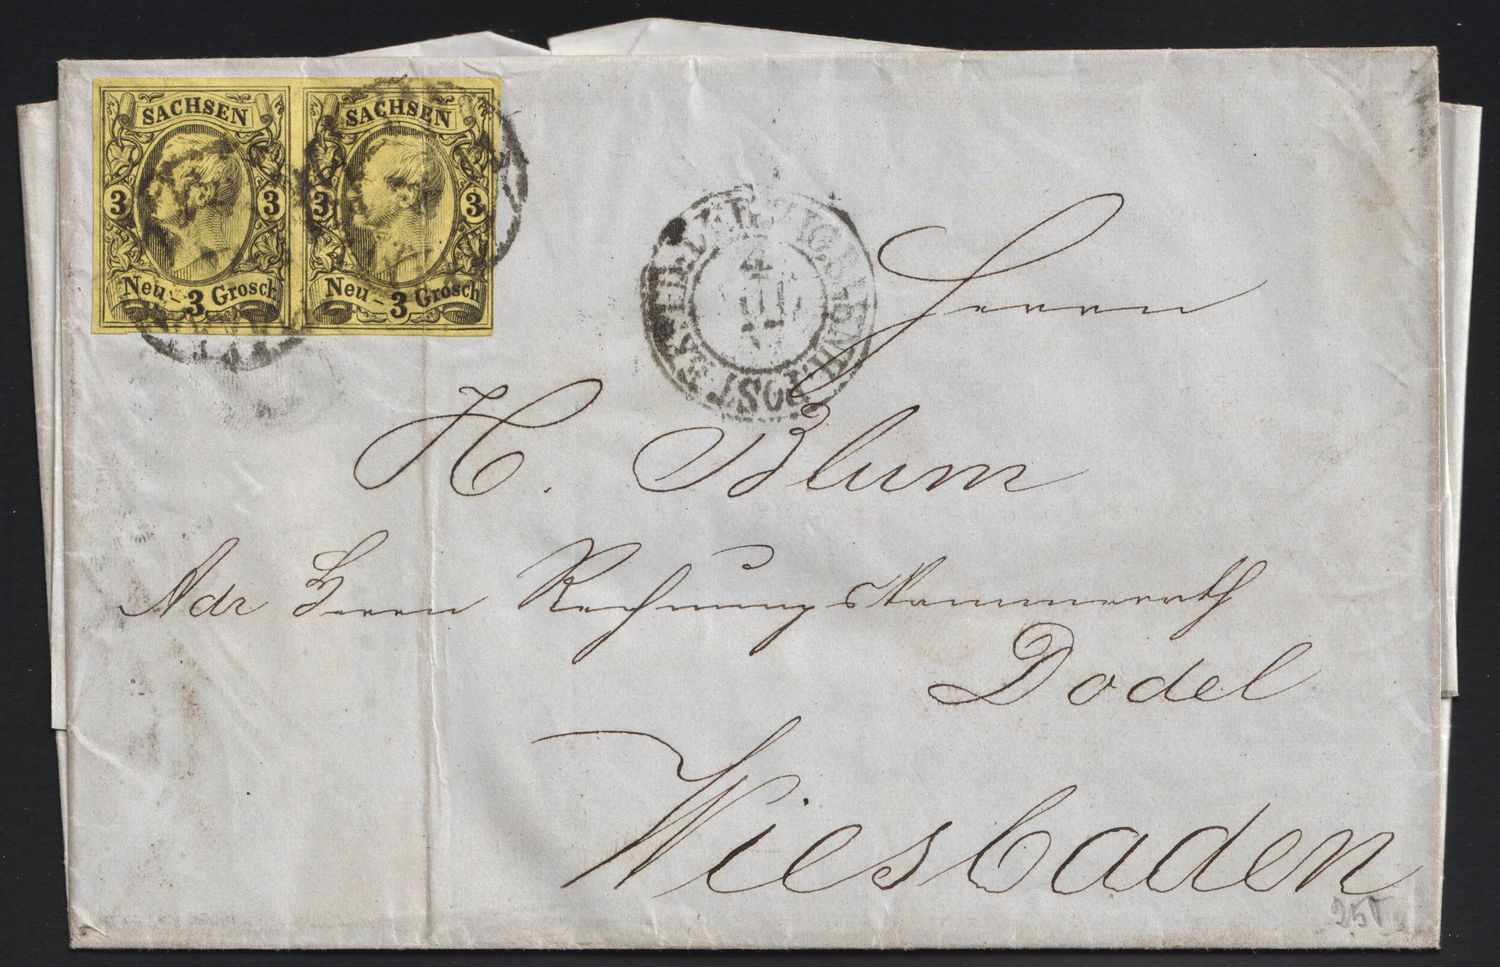 SACHSEN SACHSEN
3 3 3 3
Neu-3 Grosch Neu-3 Grosch
4
III
POST
Herrn
H. Blum
Adr Herrn Rechnungskammerrath
Dodel
Wiesbaden